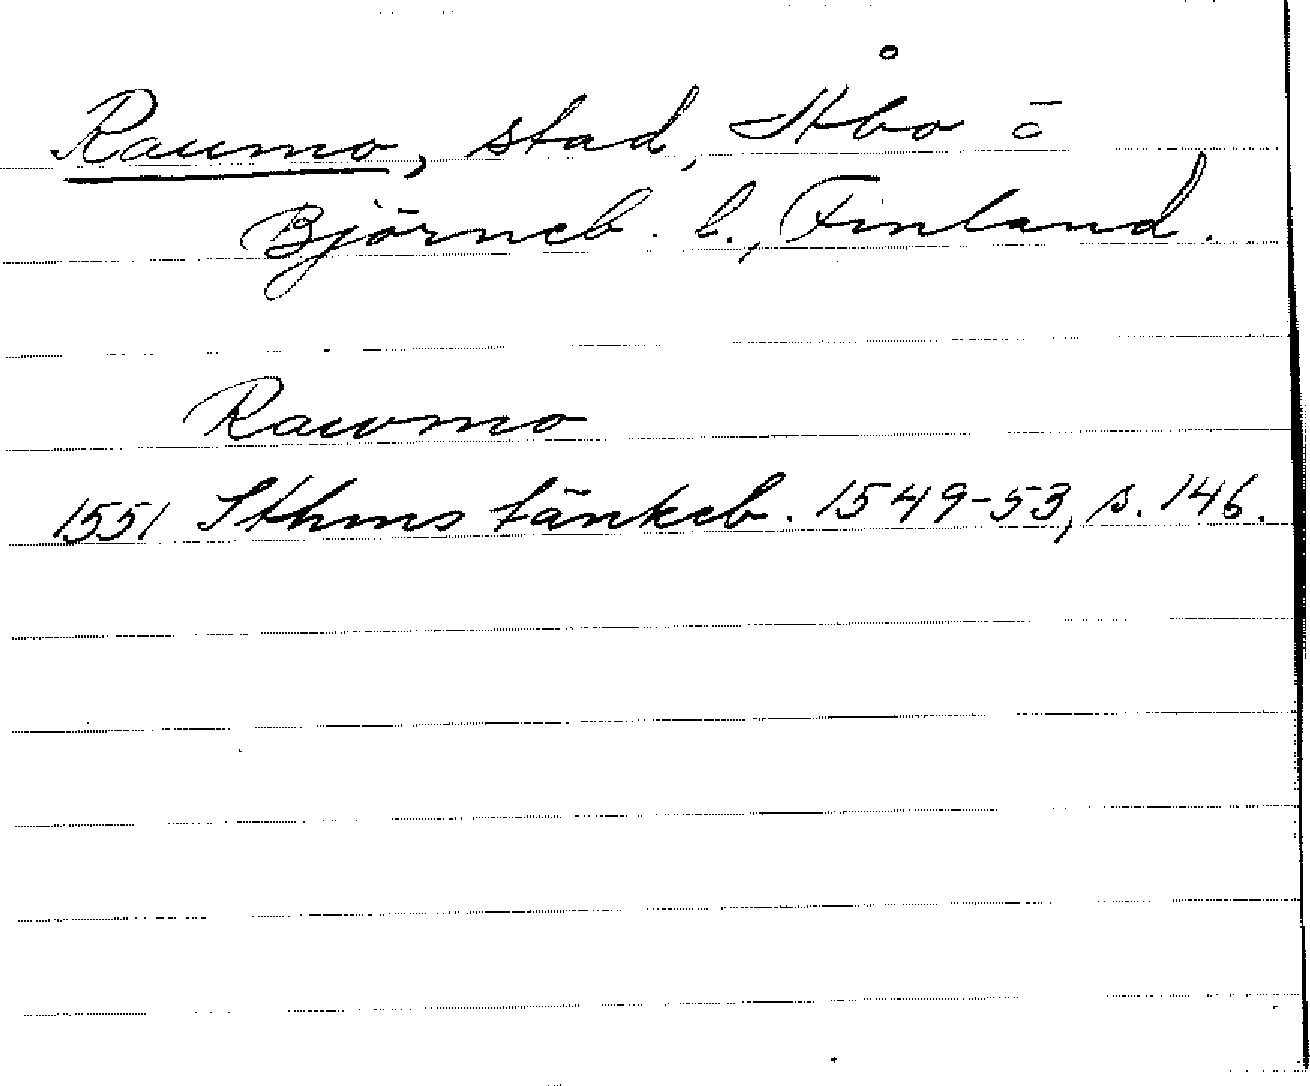 Raumo, stad, Åbo o
Björneb. l., Finland.
Rawmo
1551 Sthms tänkeb. 1549-53, s. 146.